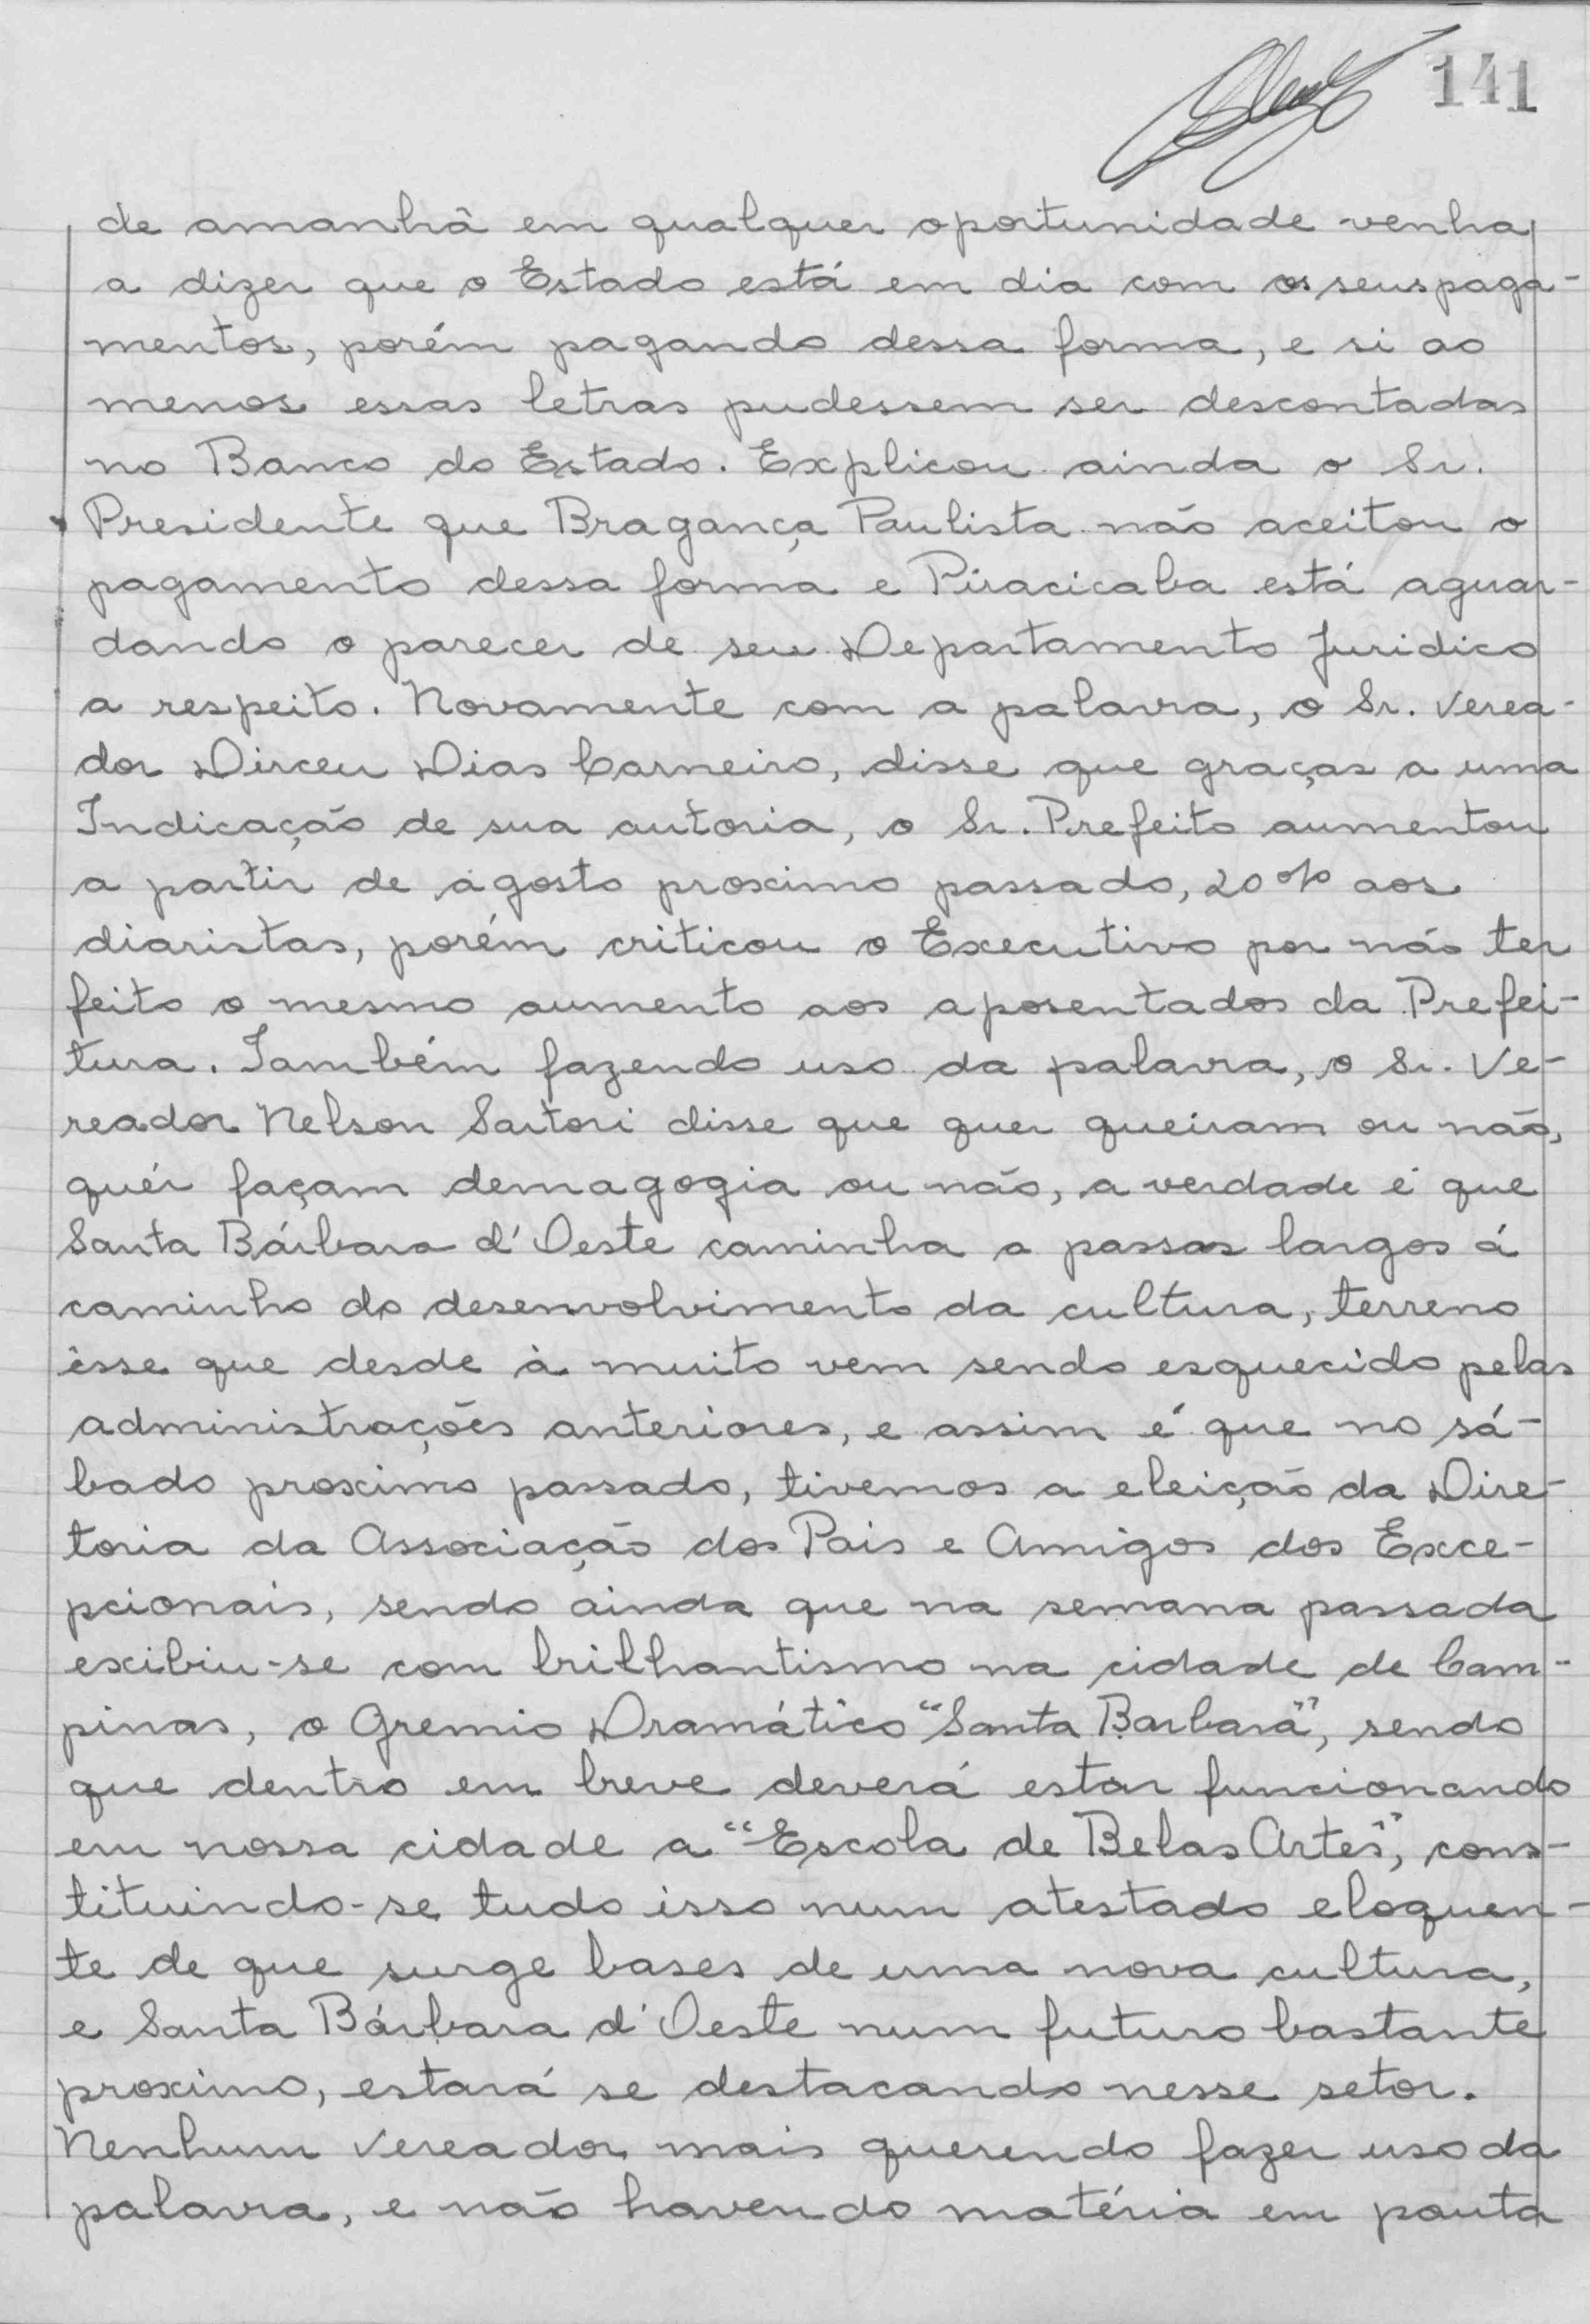 141
de amanhã em qualquer oportunidade venha
a dizer que o Estado está em dia com os seus paga-
mentos, porém pagando dessa forma, e si ao
menos essas letras pudessem ser descontadas
no Banco do Estado. Explicou ainda o Sr.
Presidente que Bragança Paulista não aceitou o
pagamento dessa forma e Piracicaba está aguar-
dando o parecer de seu Departamento Juridico
a respeito. Novamente com a palavra, o Sr. Verea-
dor Dirceu Dias Carneiro, disse que graças a uma
Indicação de sua autoria, o Sr. Prefeito aumentou
a partir de agosto proximo passado, 20% aos
diaristas, porém criticou o Executivo por não ter
feito o mesmo aumento aos aposentados da Prefei-
tura. Também fazendo uso da palavra, o Sr. Ve-
reador Nelson Sartori disse que quer queiram ou não,
quér façam demagogia ou não, a verdade é que
Santa Bárbara d'Oeste caminha a passos largos á
caminho do desenvolvimento da cultura, terreno
êsse que desde à muito vem sendo esquecido pelas
administrações anteriores, e assim é que no sá-
bado proximo passado, tivemos a eleição da Dire-
toria da Associação dos Pais e Amigos dos Exce-
pcionais, sendo ainda que na semana passada
exibiu-se com brilhantismo na cidade de Cam-
pinas, o Gremio Dramático "Santa Barbara", sendo
que dentro em breve deverá estar funcionando
em nossa cidade a "Escola de Belas Artes", cons-
tituindo-se tudo isso num atestado eloquen-
te de que surge bases de uma nova cultura,
e Santa Bárbara d'Oeste num futuro bastante
proximo, estará se destacando nesse setor.
Nenhum Vereador mais querendo fazer uso da
palavra, e não havendo matéria em pauta